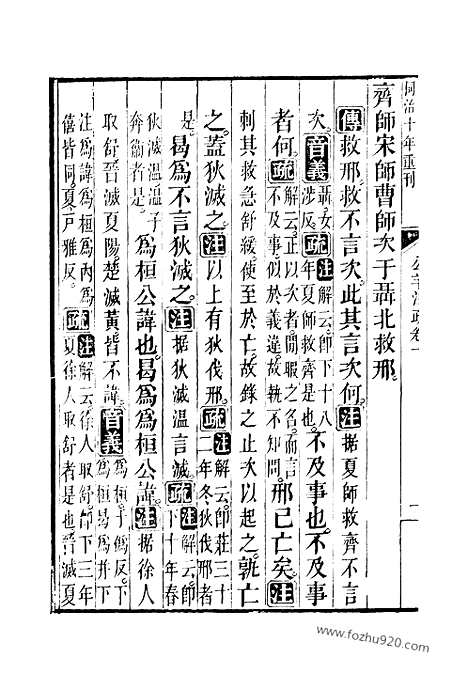 同治十年重刊
公羊注疏卷十
二
齊師宋師曹師次于聶北救邢。
傳救邢救不言次。此其言次何。注据夏師救齊不言
次。音義聶女涉反。疏注解云。即下十八年夏師救齊是也。不及事也。不及事
者何。疏解云。正以次者閒暇之名。而言不及事。似於義違。故執不知問。邢已亡矣。注
刺其救急舒緩。使至於亡。故錄之止次以起之。孰亡
之。蓋狄滅之。注以上有狄伐邢。疏注解云。即莊三十二年冬狄伐邢者
是。曷爲不言狄滅之。注据狄滅溫言滅。疏注解云。即下十年春
狄滅溫。溫子奔衞者是。爲桓公諱也。曷爲爲桓公諱。注据徐人
取舒。晉滅夏陽。楚滅黃。皆不諱。音義爲桓。于僞反。下曷爲并下
注爲諱爲桓爲內爲僖皆同。夏。戸雅反。疏注解云。徐人取舒。即下三年夏徐人取舒者是也。晉滅夏
www.fozhu920.com